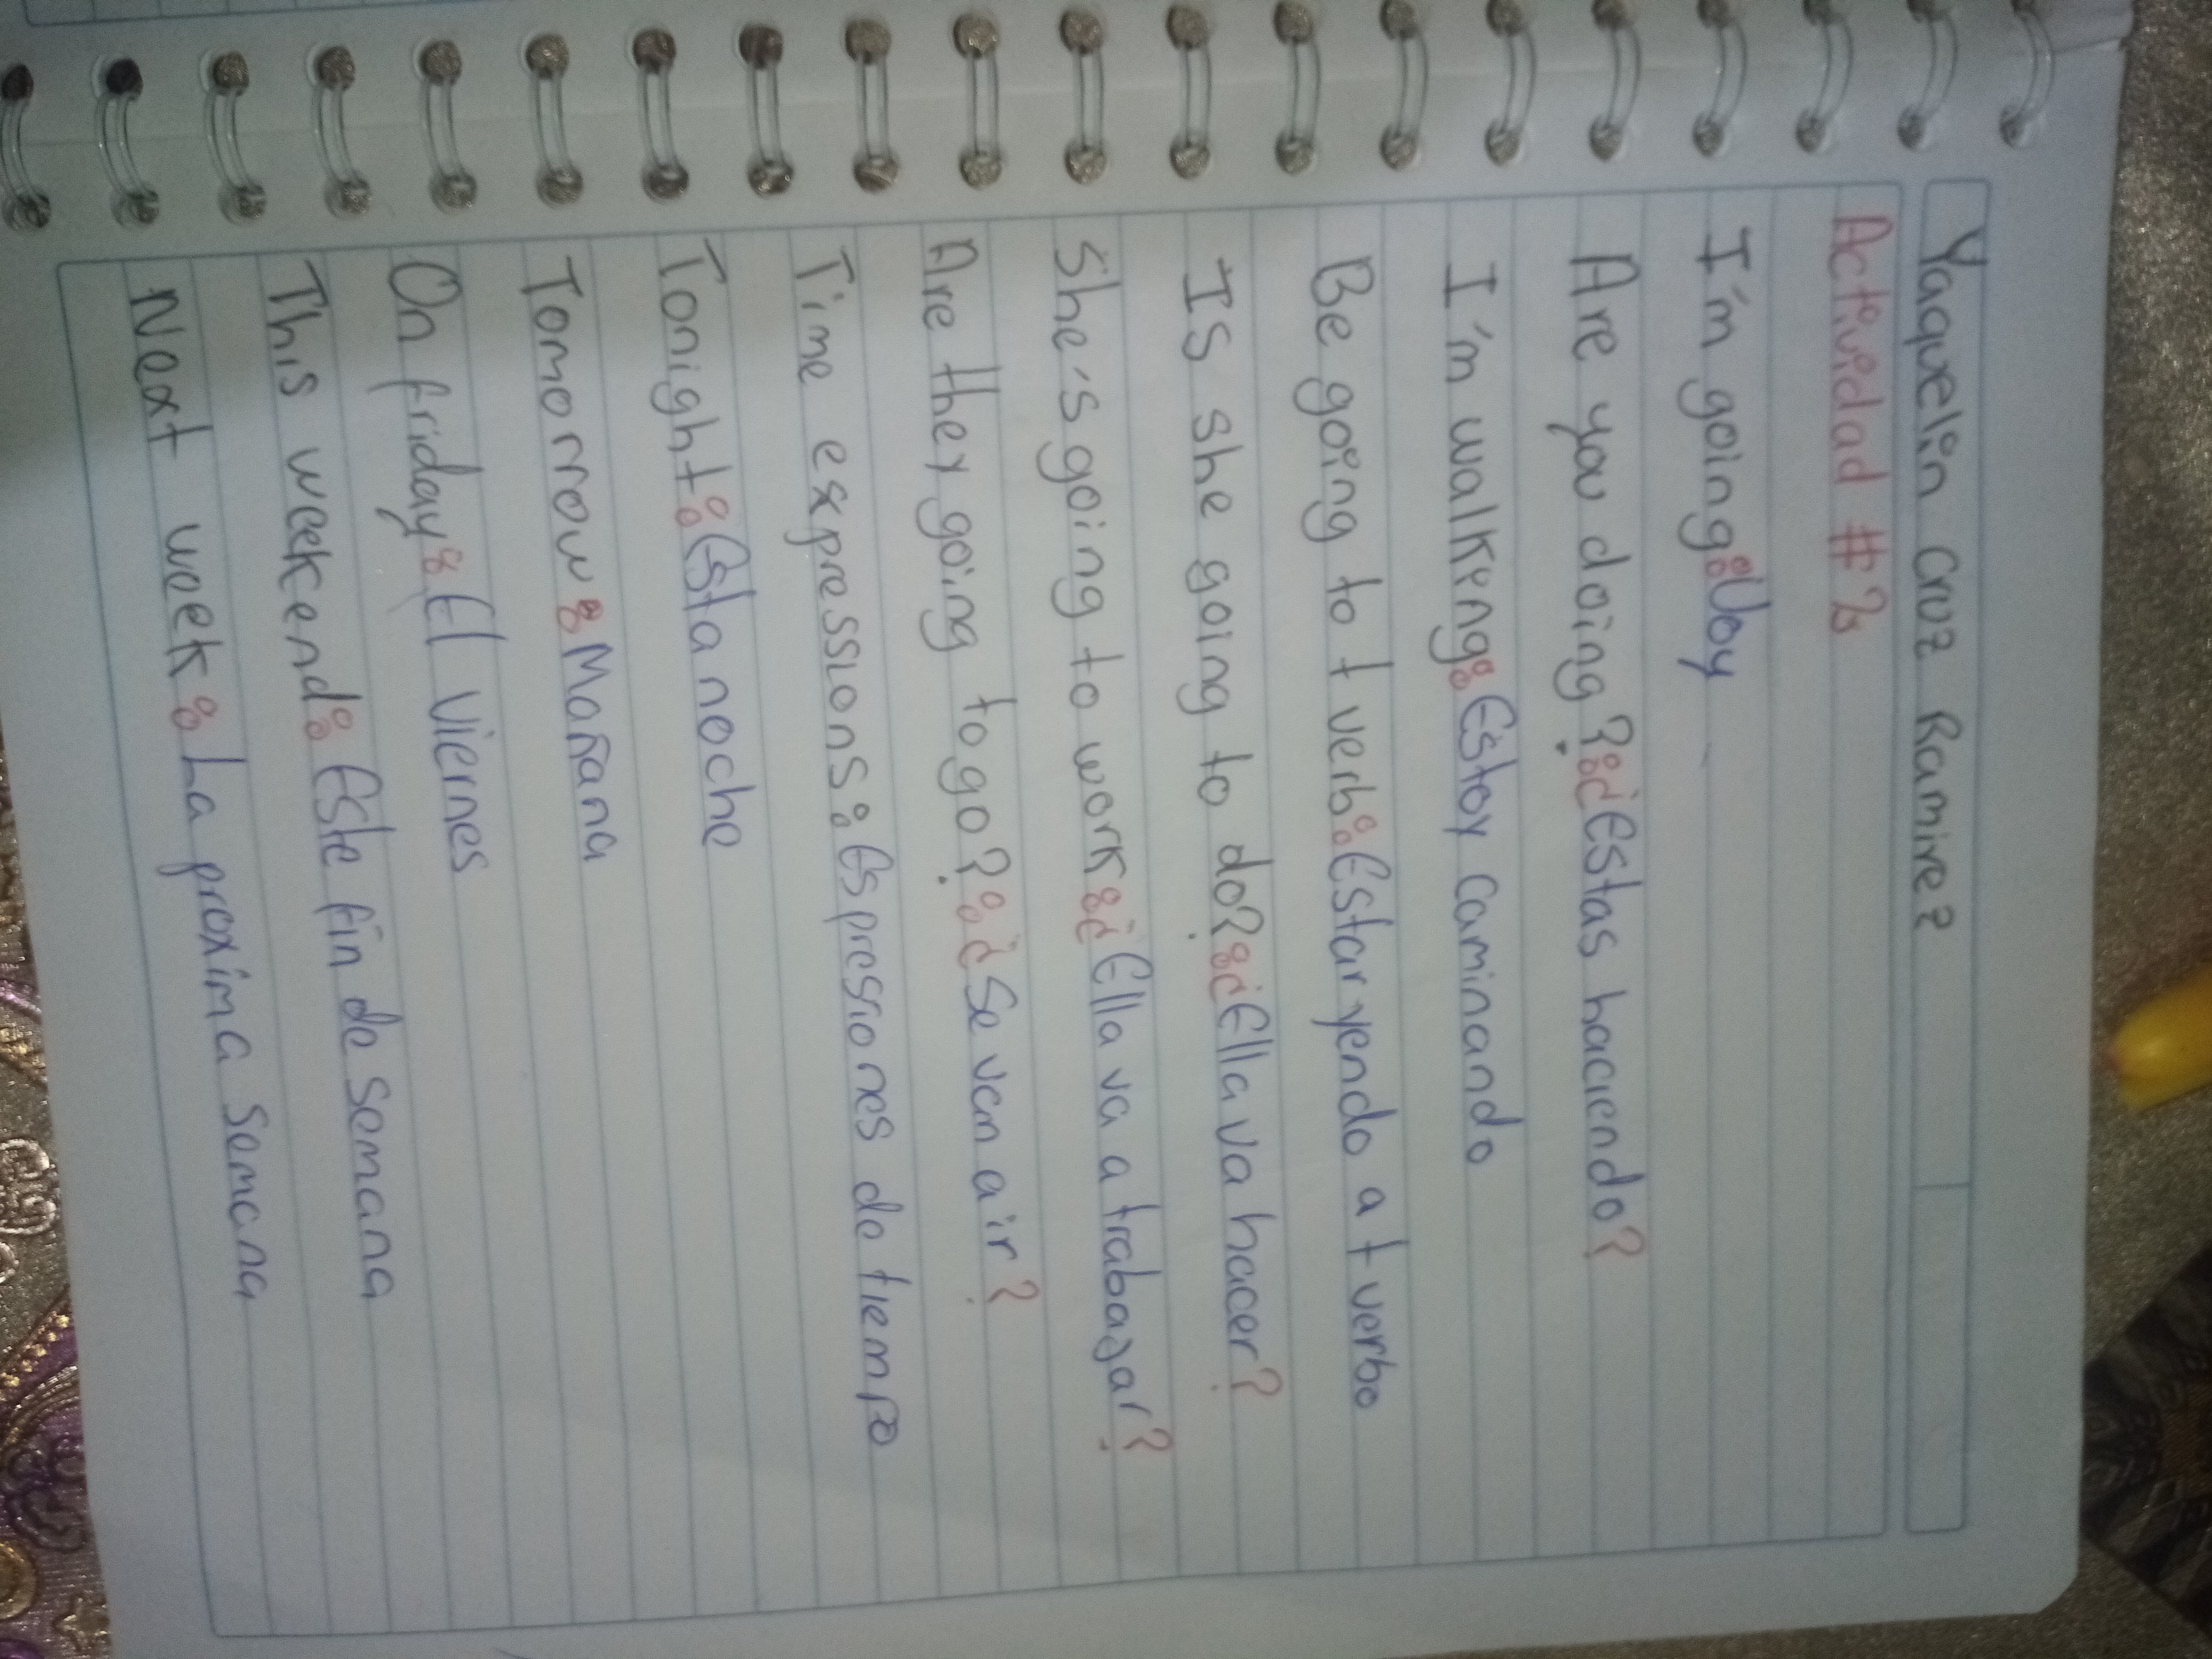 Yaquelin Cruz Ramirez
Actividad #2
I'm going: Voy
Are you doing?: ¿Estas haciendo?
I'm walking: Estoy caminando
Be going to t verb: Estar yendo a t verbo
Is she going to do?: ¿Ella va hacer?
She's going to work: ¿Ella va a trabajar?
Are they going to go?: ¿Se van a ir?
Time expressions: Espressiones de tiempo
Tonight: Esta noche
Tomorrow: Mañana
On friday: El viernes
This weekend: Este fin de semana
Next week: La proxima semana